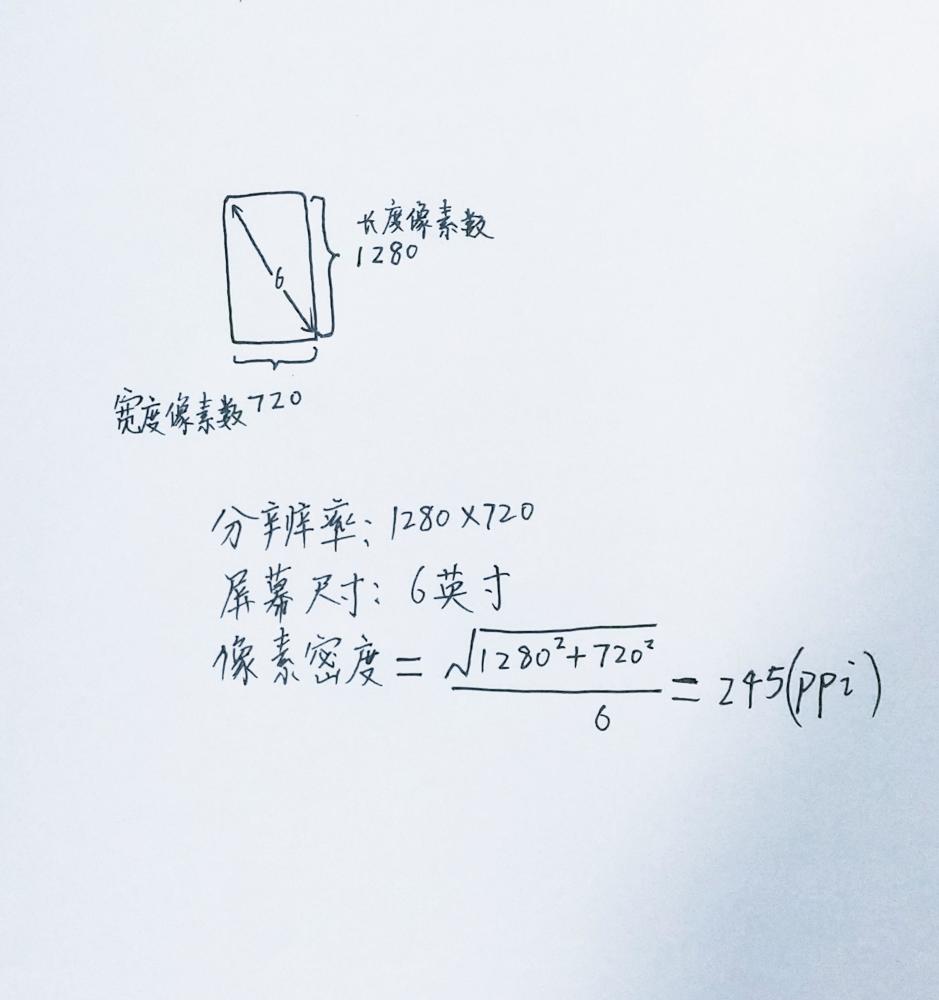 长度像素数
1280
6
宽度像素数720
分辨率：1280×720
屏幕尺寸：6英寸
像素密度 = √(1280²+720²) / 6 = 245(ppi)